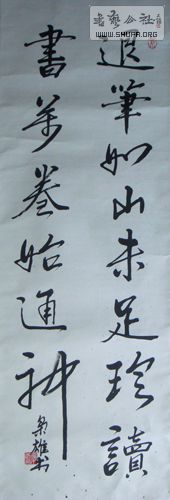 退筆如山未足珍讀
書萬卷始通神
梟雄书
書藝公社
www.shufa.org